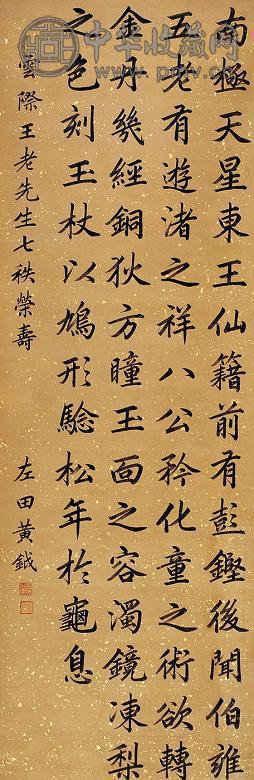 南極天星東王仙籍前有彭鏗後聞伯雒
五老有遊渚之祥八公矜化童之術欲轉
金丹幾經銅狄方瞳玉面之容濁鏡凍梨
之色刻玉杖以鳩形驗松年於龜息
雲際王老先生七秩榮壽
左田黃鉞
中华收藏网